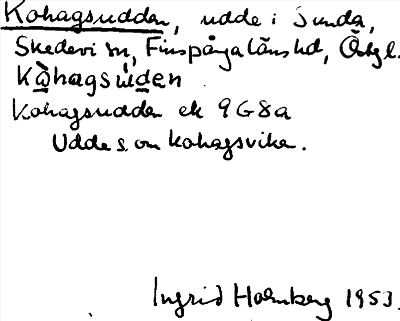 Kohagsudden, udde i Sunda,
Skedevi sn, Finspånga läns hd, Östgl.
Kohagsudden ek 9G8a
Udde s om Kohagsviken.
Ingrid Holmberg 1953.